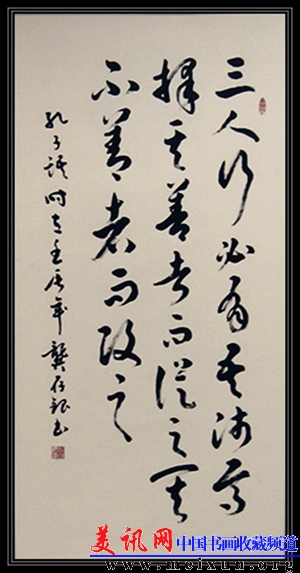 三人行必有我師焉
擇其善者而從之其
不善者而改之
孔子語時在壬辰年龔存书
美讯网 中国书画收藏频道
www.meixun.org